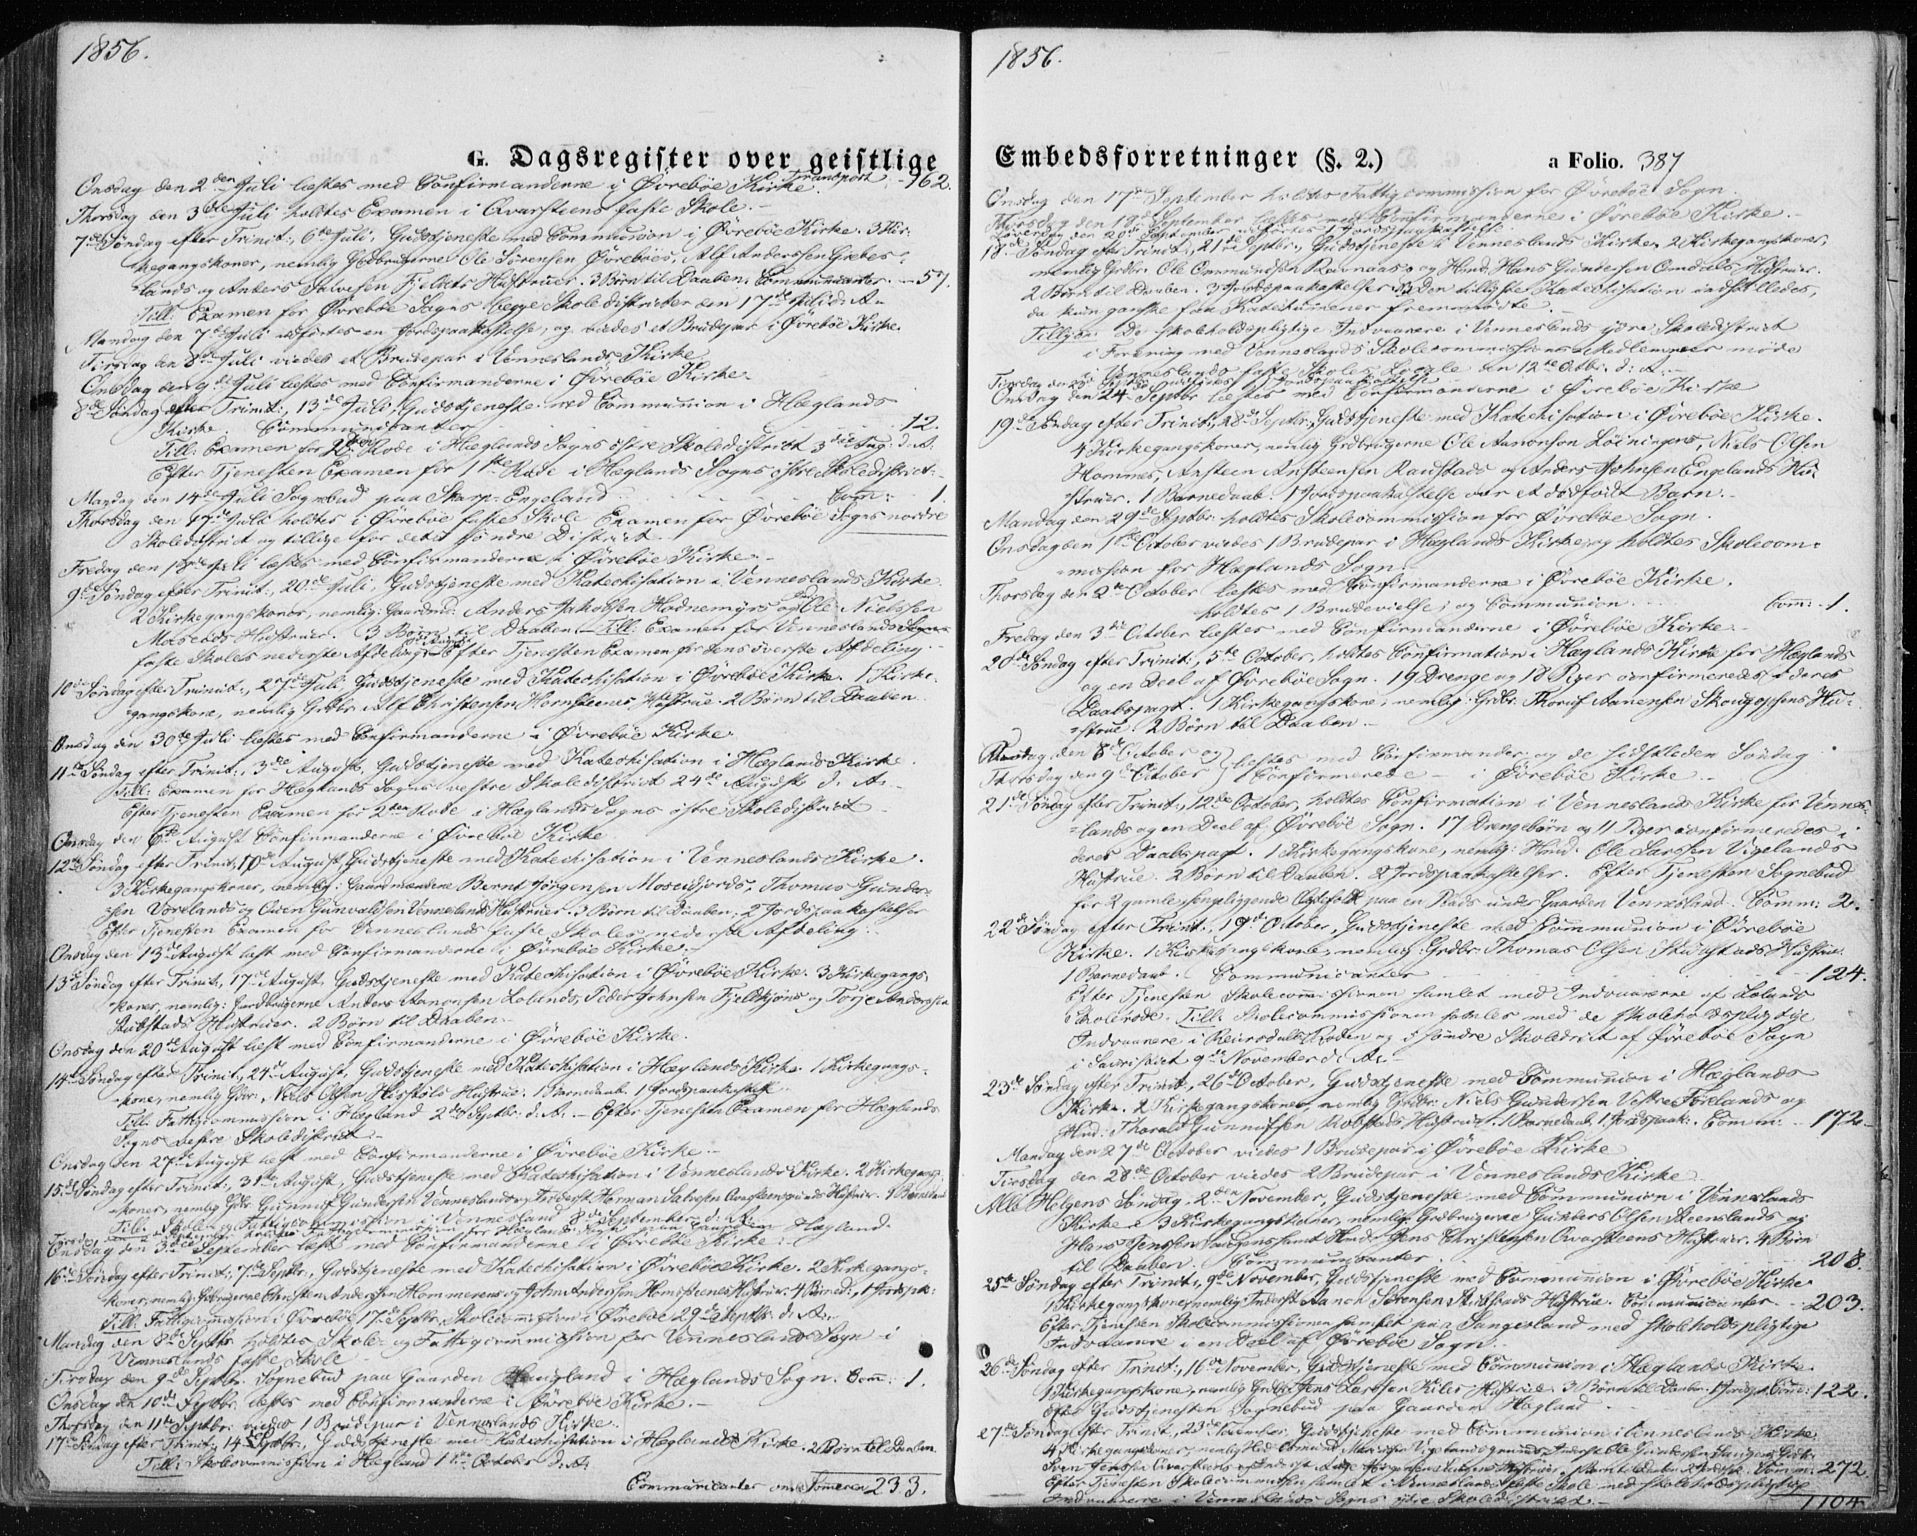 1856.
G. Dagsregister over geistlige
Onsdag den 2den Juli læstes med Confirmanderne i Øvrebøe Kirke. Transport 162.
Thorsdag den 3die Juli holdtes Examen i Qvarsteens faste Skole.
7de Søndag efter Trinit:, 6te Juli, Gudstjeneste med Communion i Øvrebøe Kirke. 3 Kir-
kegangskoner, nemlig Gdbrugerne Ole Sørensen Øvrebøes, Alf Anderssen Giebes-
lands og Anders Salvesen Fjeldets Hustruer. 3 Børn til Daaben. Communicanter - 57.
Till: Examen for Øvrebøe Sogns Skoledistricter den 17de Juli d. A.
Mandag den 7de Juli udførtes en Jordspaakastelse, og viedes et Brudepar i Øvrebøe Kirke.
Tirsdag den 8de Juli viedes et Brudepar i Venneslands Kirke
Onsdag den 9de Juli læstes med Confirmanderne i Øvrebøe Kirke.
8de Søndag efter Trinit:, 13de Juli, Gudstjeneste med Communion i Hæglands
Kirke. Communicanter 12.
Till: Examen for Rode i Hæglands Sogns østre Skoledistrict d. A.
Efter Tjenesten Examen for 1ste Rode i Hæglands Sogns østre Skoledistrict.
Mandag den 14de Juli Sognebud paa Skarp-Engeland Com: 1.
Thorsdag den 17de Juli holdtes i Øvrebøe faste Skole Examen for Øvrebøe Sogns nordre
Skoledistrict og tillige for dets søndre District.
Fredag den 18de Juli læstes med Confirmanderne i Øvrebøe Kirke.
9de Søndag efter Trinit:, 20de Juli, Gudstjeneste med Katechisation i Venneslands Kirke.
2 Kirkegangskoner, nemlig: Gaardmd: Anders Jakobsen Hodnemyrs og Ole Nielssen
Moseids Hustruer. 3 Børn til Daaben. Till: Examen for Venneslands
faste Skoles nederste Afdeling. Efter Tjenesten Examen for dens øverste Afdeling.
10de Søndag efter Trinit:, 27de Juli Gudstjeneste med Katechisation i Øvrebøe Kirke. 1 Kirke-
gangskone, nemlig Gdbr: Alf Christensen Homsteenes Hustrue. 2 Børn til Daaben.
Onsdag den 30te Juli læstes med Confirmanderne i Øvrebøe Kirke
11te Søndag efter Trinit:, 3de August, Gudstjeneste med Katechisation i Hæglands Kirke.
Till: Examen for Hæglands Sogns vestre Skoledistrict 24de August d. A.
Efter Tjenesten Examen for 2den Rode i Hæglands Sogns østre Skoledistrict
Onsdag den 6te August Confirmanderne i Øvrebøe Kirke
12te Søndag efter Trinit, 10de August, Gudstjeneste med Katechisation i Venneslands Kirke.
3 Kirkegangskoner, nemlig: Gaardmændene Bernt Jørgensen Moseidjords, Thomas Gunder-
sen Vorelands og Owen Gunvaldsen Venneslands Hustruer. 3 Børn til Daaben. 2 Jordspaakastelser
Efter Tjenesten Examen for Venneslands faste Skoles nederste Afdeling.
Onsdag den 13de August læst med Confirmanderne i Øvrebøe Kirke.
13de Søndag efter Trinit, 17de August, Gudstjeneste med Katechisation i Øvrebøe Kirke. 3 Kirkegangs-
koner, nemlig: Gaardbrugerne Anders Aanonsen Lolands, Peder Johnsen Fjeldkjøns og Torje Andersen
Stubstads Hustruer. 2 Børn til Daaben.
Onsdag den 20de August læst med Confirmanderne i Øvrebøe Kirke.
14de Søndag efter Trinit:, 24de August, Gudstjeneste med Katechisation i Hæglands Kirke. 1 Kirkegangs-
kone, nemlig Gdbr: Niels Olsen Hustrue. 1 Barnedaab. 1 Jordspaakastelse
Till: Fattigcommission i Hægland 2den Septbr: d. A. - Efter Tjenesten Examen for Hæglands
Sogns vestre Skoledistrict.
Onsdag den 27de August læst med Confirmanderne i Øvrebøe Kirke.
15de Søndag efter Trinit:, 31te August, Gudstjeneste med Katechisation i Venneslands Kirke. 2 Kirkegangs-
koner, nemlig Gdbr: Gunnuf Gundersen Venneslands og Inderst Herman Salvesen Hustruer. 1 Barnedaab
Till: Skole og Fattigcommission i Vennesland 8de September d. A.
Onsdag den 3die September læst med Confirmanderne i Øvrebøe Kirke.
16de Søndag efter Trinit:, 7de Septbr., Gudstjeneste med Katechisation i Øvrebøe Kirke. 2 Kirkegangs-
koner, nemlig Gdbrugerne Christen Andersen Hommerens og John Andersen Homsteenes Hustruer. 4 Barned: 1 Jordspk:
Till: Fattigcommission i Øvrebøe 17de Septbr, Skolecommission i Øvrebøe 29de Septbr. d. A.
Mandag den 8de Septbr. holdtes Skole- og Fattigcommission for Venneslands Sogn i
Venneslands faste Skole
Tirsdag den 9de Septbr. Sognebud paa Gaarden Hægland i Hæglands Sogn. Com: 1.
Onsdag den 10de Septbr. læstes med Confirmanderne i Øvrebøe Kirke.
Thorsdag den 11te Septbr. viedes 1 Brudepar i Venneslands Kirke.
17de Søndag efter Trinit:, 14de Septbr, Gudstjeneste med Katechisation i Hæglands Kirke. 2 Børn til Daaben.
Till: Skolecommission i Hægland 1ste October d. A.
Communicanter om Sommeren 233.
1856.
Embedsforretninger (§. 2.) a Folio. 387
Onsdag den 17de September holdtes Fattigcommission for Øvrebøe Sogn.
Thorsdag den 18de September læstes med Confirmanderne i Øvrebøe Kirke.
Løverdag den 20de September udførtes 1 Jordspaakastelse
18de Søndag efter Trinit:, 21de Septbr., Gudstjeneste i Venneslands Kirke. 2 Kirkegangskoner,
nemlig Gdbr: Ole Ommundsen Ravnaas og Hmd: Hans Gundersen Omdals Hustruer.
2 Børn til Daaben. 3 Jordspaakastelser. Den tillyste Katechisation indstilledes,
da kun ganske faa Katechumener fremmødte.
Tillyst: De skoleholdspligtige Indvaanere i Venneslands ydre Skoledistrict
i Forening med Venneslands Skolecommissions Medlemmer møde
i Venneslands faste Skoles Locale den 12te Octbr. d. A.
Tirsdag den 23de Septbr 1 Jordspaakastelse
Onsdag den 24 Septbr læstes med Confirmanderne i Øvrebøe Kirke
19de Søndag efter Trinit:, 28de Septbr, Gudstjeneste med Katechisation i Øvrebøe Kirke.
4 Kirkegangskoner, nemlig Gdbrugerne Ole Aanonsen Løiningens, Niels Olsen
Hommes, Ansteen Ansteensen Raustads og Anders Johnsen Engelands Hu-
struer. 1 Barnedaab. 1 Jordspaakastelse over et dødfødt Barn.
Mandag den 29de Septbr: holdtes Skolecommission for Øvrebøe Sogn.
Onsdag den 1ste October viedes 1 Brudepar i Hæglands Kirke og holdtes Skolecom-
mission for Hæglands Sogn.
Thorsdag den 2den October læstes med Confirmanderne i Øvrebøe Kirke.
holdtes 1 Brudevielse og Communion Com: 1.
Fredag den 3die October læstes med Confirmanderne i Øvrebøe Kirke.
20de Søndag efter Trinit:, 5te October, holdtes Confirmation i Hæglands Kirke for Hæglands
og en Deel af Øvrebøe Sogn. 19 Drenge og 18 Piger confirmeredes i deres
Daabspagt. 1 Kirkegangskone, nemlig: Gdbr: Thoruf Aanensen Hu-
strue. 2 Børn til Daaben.
Onsdag den 8de October og } læstes med Confirmander og de sidstleden Søndag
Thorsdag den 9de October } Confirmerede i Øvrebøe Kirke.
21de Søndag efter Trinit:, 12te October, holdtes Confirmation i Venneslands Kirke for Vennes-
lands og en Deel af Øvrebøe Sogn. 17 Drengebørn og 11 Piger confirmeredes i
deres Daabspagt. 1 Kirkegangskone, nemlig: Hmd: Ole Larssen Vigelands
Hustrue. 2 Børn til Daaben. 2 Jordspaakastelser. Efter Tjenesten Sognebud
for 2 gamle sengliggende Ægtefolk paa en Plads under Gaarden Vennesland. Comm: 2.
22de Søndag efter Trinit:, 19de October, Gudstjeneste med Communion i Øvrebøe
Kirke. 1 Kirkegangskone, nemlig Gdbr: Thomas Olsen Hustrue.
1 Barnedaab. Communicanter 124.
Efter Tjenesten Skolecommissionen samlet med Indvaanerne af Lolands
Skolerode. Till: Skolecommissionen samles med de skoleholdspligtige
Indvaanere i Reiersdals Roden og i søndre Skoledistrict af Øvrebøe Sogn
i Sacristiet 9de November d. A.
23de Søndag efter Trinit:, 26de October, Gudstjeneste med Communion i Hæglands
Kirke. 2 Kirkegangskoner, nemlig Gdbr: Niels Gundersen Vestre Førelands og
Hmd: Thorald Gunnufsen Hustruer. 1 Barnedaab. 1 Jordspaak: Comm: 172.
Mandag den 27de October viedes 1 Brudepar i Øvrebøe Kirke
Tirsdag den 28de October viedes 2 Brudepar i Venneslands Kirke
Alle Helgens Søndag, 2den November, Gudstjeneste med Communion i Venneslands
Kirke. 3 Kirkegangskoner, nemlig Gdbrugerne Gunbers Olsen Steenslands og
Hans Jenssen samt Hmd: Jens Christensen Qvarsteens Hustruer. 4 Børn
til Daaben. Communicanter 208.
25de Søndag efter Trinit:, 9de November, Gudstjeneste med Communion i Øvrebøe Kirke
1 Kirkegangskone, nemlig Inderst Aanon Sørensen Stubstads Hustrue. Communicanter 203.
Efter Tjenesten Skolecommissionen samlet paa Sangesland med skoleholdspligtige
Indvaanere i en Deel af Øvrebøe Sogn.
26de Søndag efter Trinit:, 16de November, Gudstjeneste med Communion i Hæglands Kirke.
1 Kirkegangskone, nemlig Gdbr: Jens Larssen Kiles Hustrue. 3 Børn til Daaben. 1 Jordsp. Com: 122.
Efter Gudstjenesten Sognebud paa Gaarden Hægland
27de Søndag efter Trinit, 23de November, Gudstjeneste med Communion i Venneslands Kirke
4 Kirkegangskoner, nemlig
Sven Jenssen Hustruer. Børn til Daaben. 2 Jordsp. Comm: 272.
Efter Tjenesten Skolecommissionen samlet i Venneslands faste Skole med skoleholdspligtige
Indvaanere i Venneslands Sogns ydre Skoledistrict.
1104